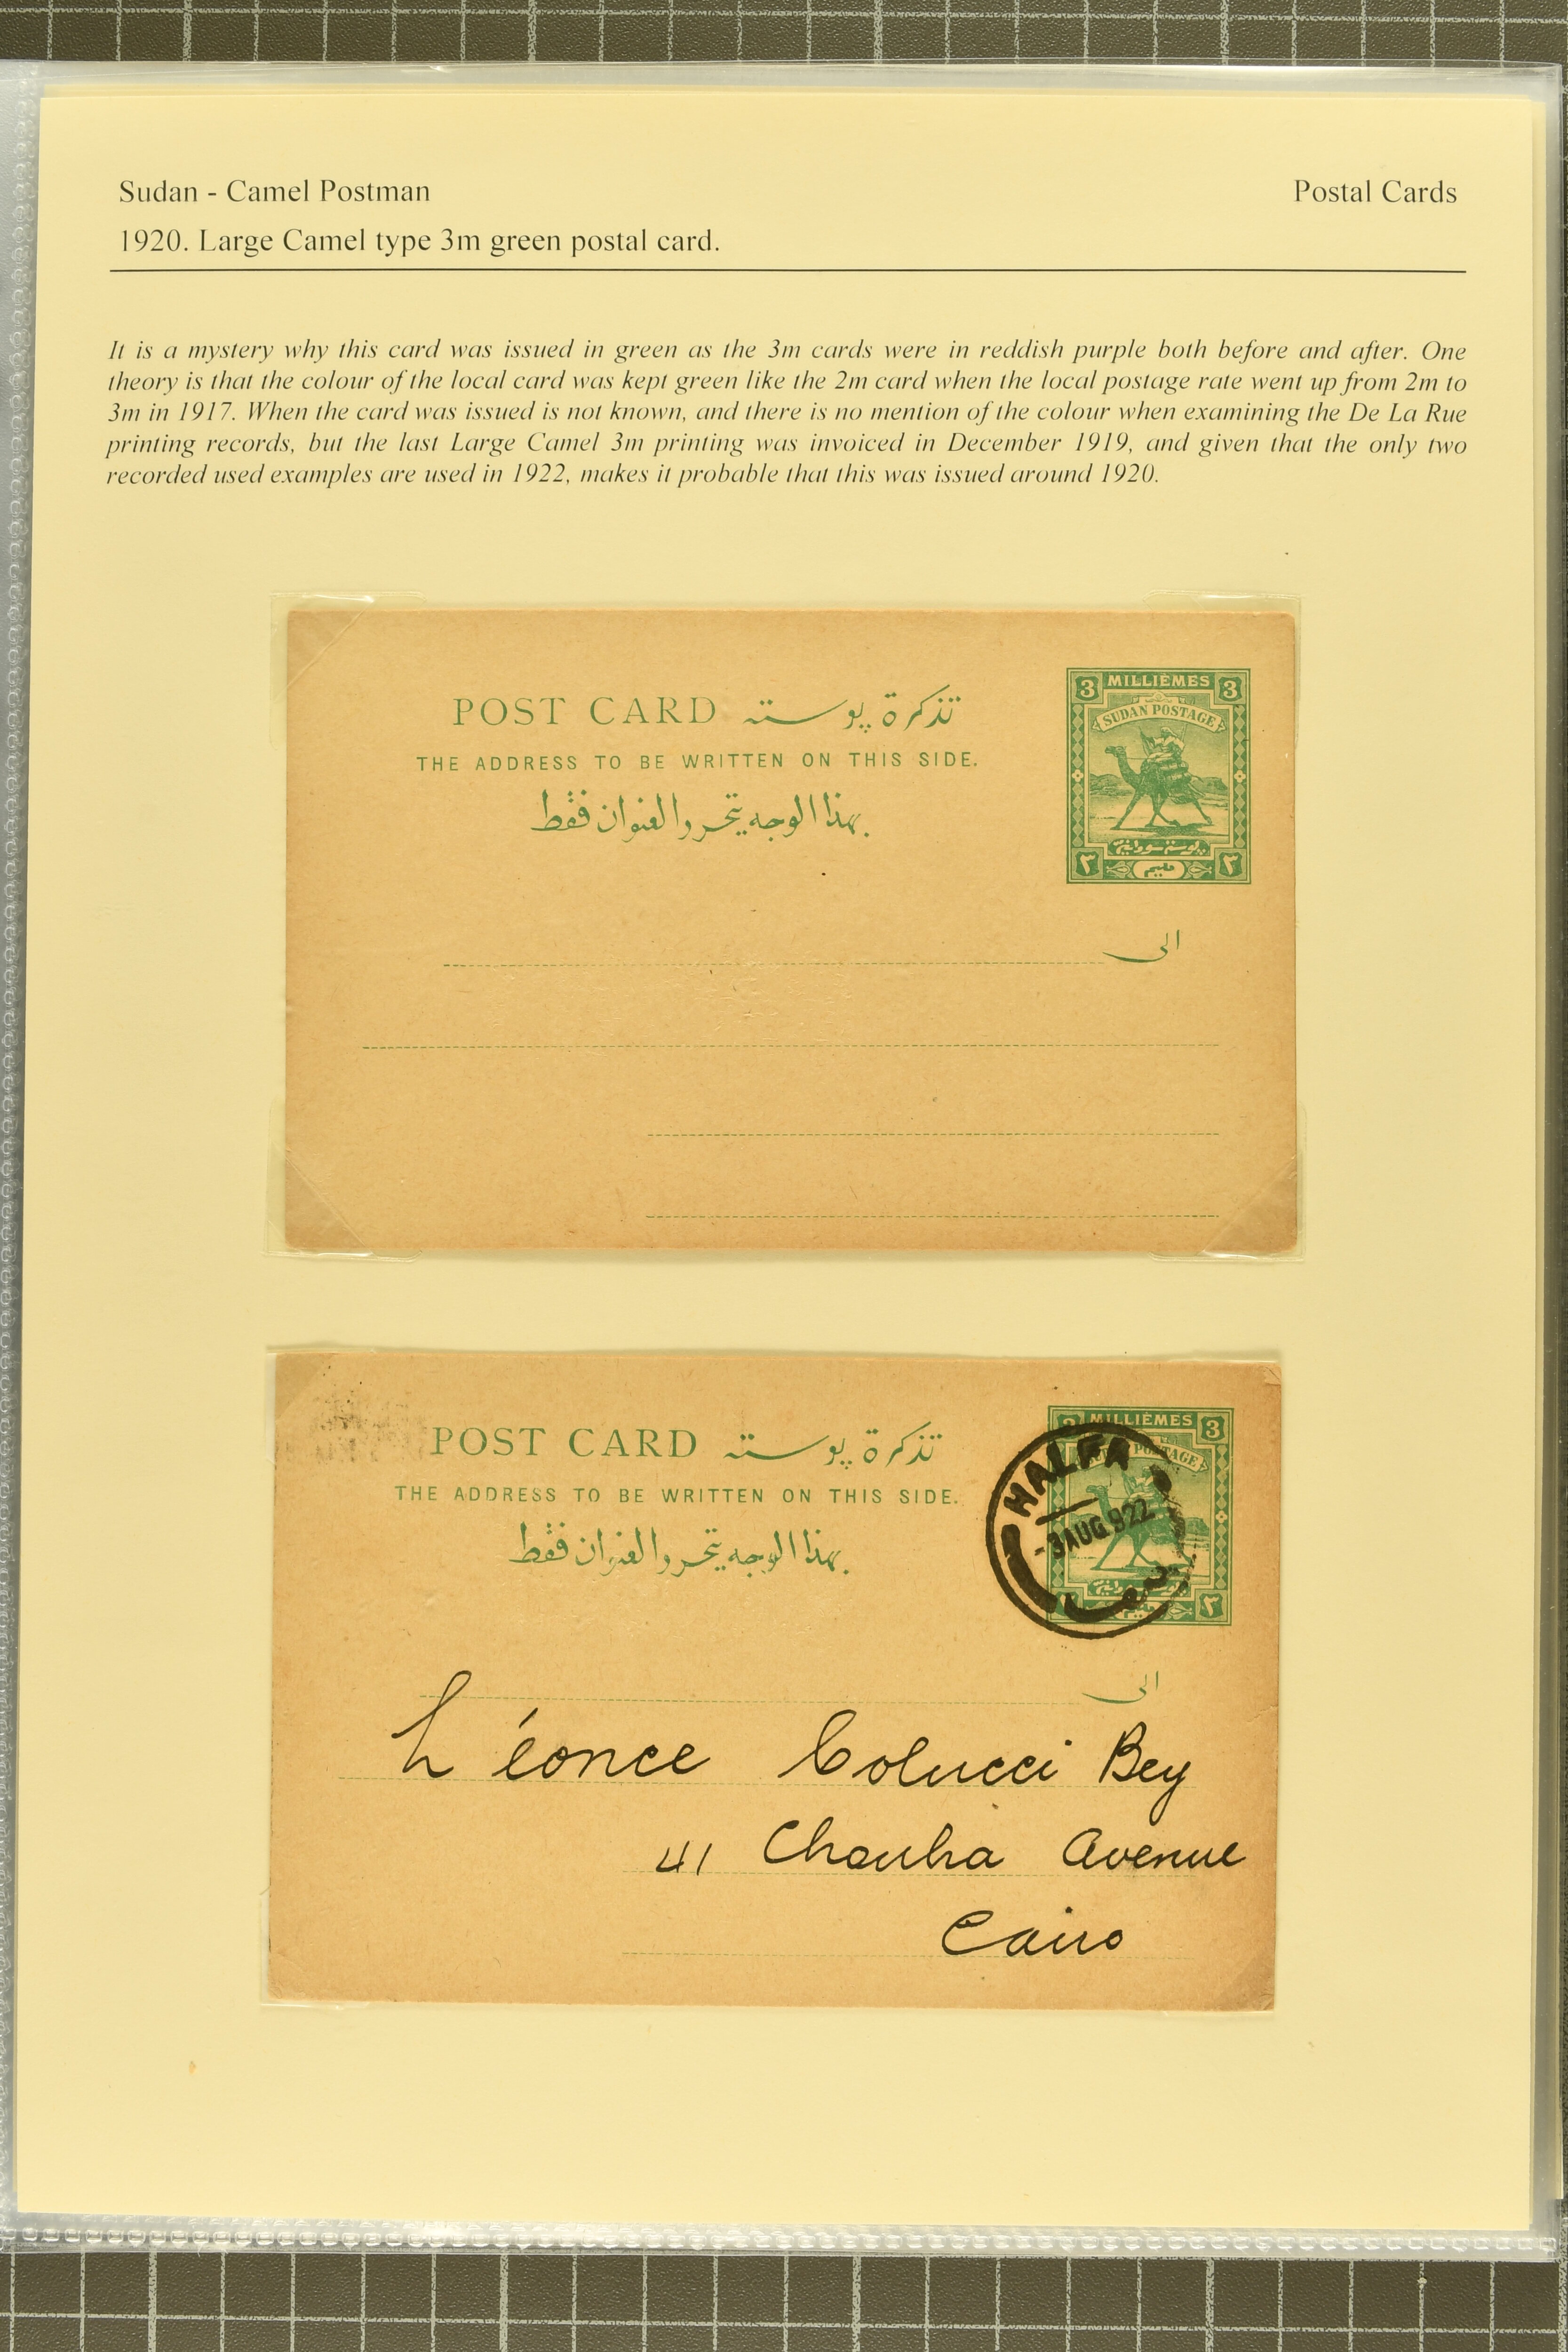 Sudan - Camel Postman
Postal Cards
1920. Large Camel type 3m green postal card.
It is a mystery why this card was issued in green as the 3m cards were in reddish purple both before and after. One
theory is that the colour of the local card was kept green like the 2m card when the local postage rate went up from 2m to
3m in 1917. When the card was issued is not known, and there is no mention of the colour when examining the De La Rue
printing records, but the last Large Camel 3m printing was invoiced in December 1919, and given that the only two
recorded used examples are used in 1922, makes it probable that this was issued around 1920.
POST CARD تذكرة پوسته
THE ADDRESS TO BE WRITTEN ON THIS SIDE.
بهذا الوجه يتحرر العنوان فقط
3 MILLIÈMES 3
SUDAN POSTAGE
پوستة سودانية
٣ مليم ٣
الى
POST CARD تذكرة پوسته
THE ADDRESS TO BE WRITTEN ON THIS SIDE.
بهذا الوجه يتحرر العنوان فقط
3 MILLIÈMES 3
POSTAGE
٣
HALFA
-3 AUG 922
الى
Léonce Colucci Bey
41 Choubra Avenue
Cairo